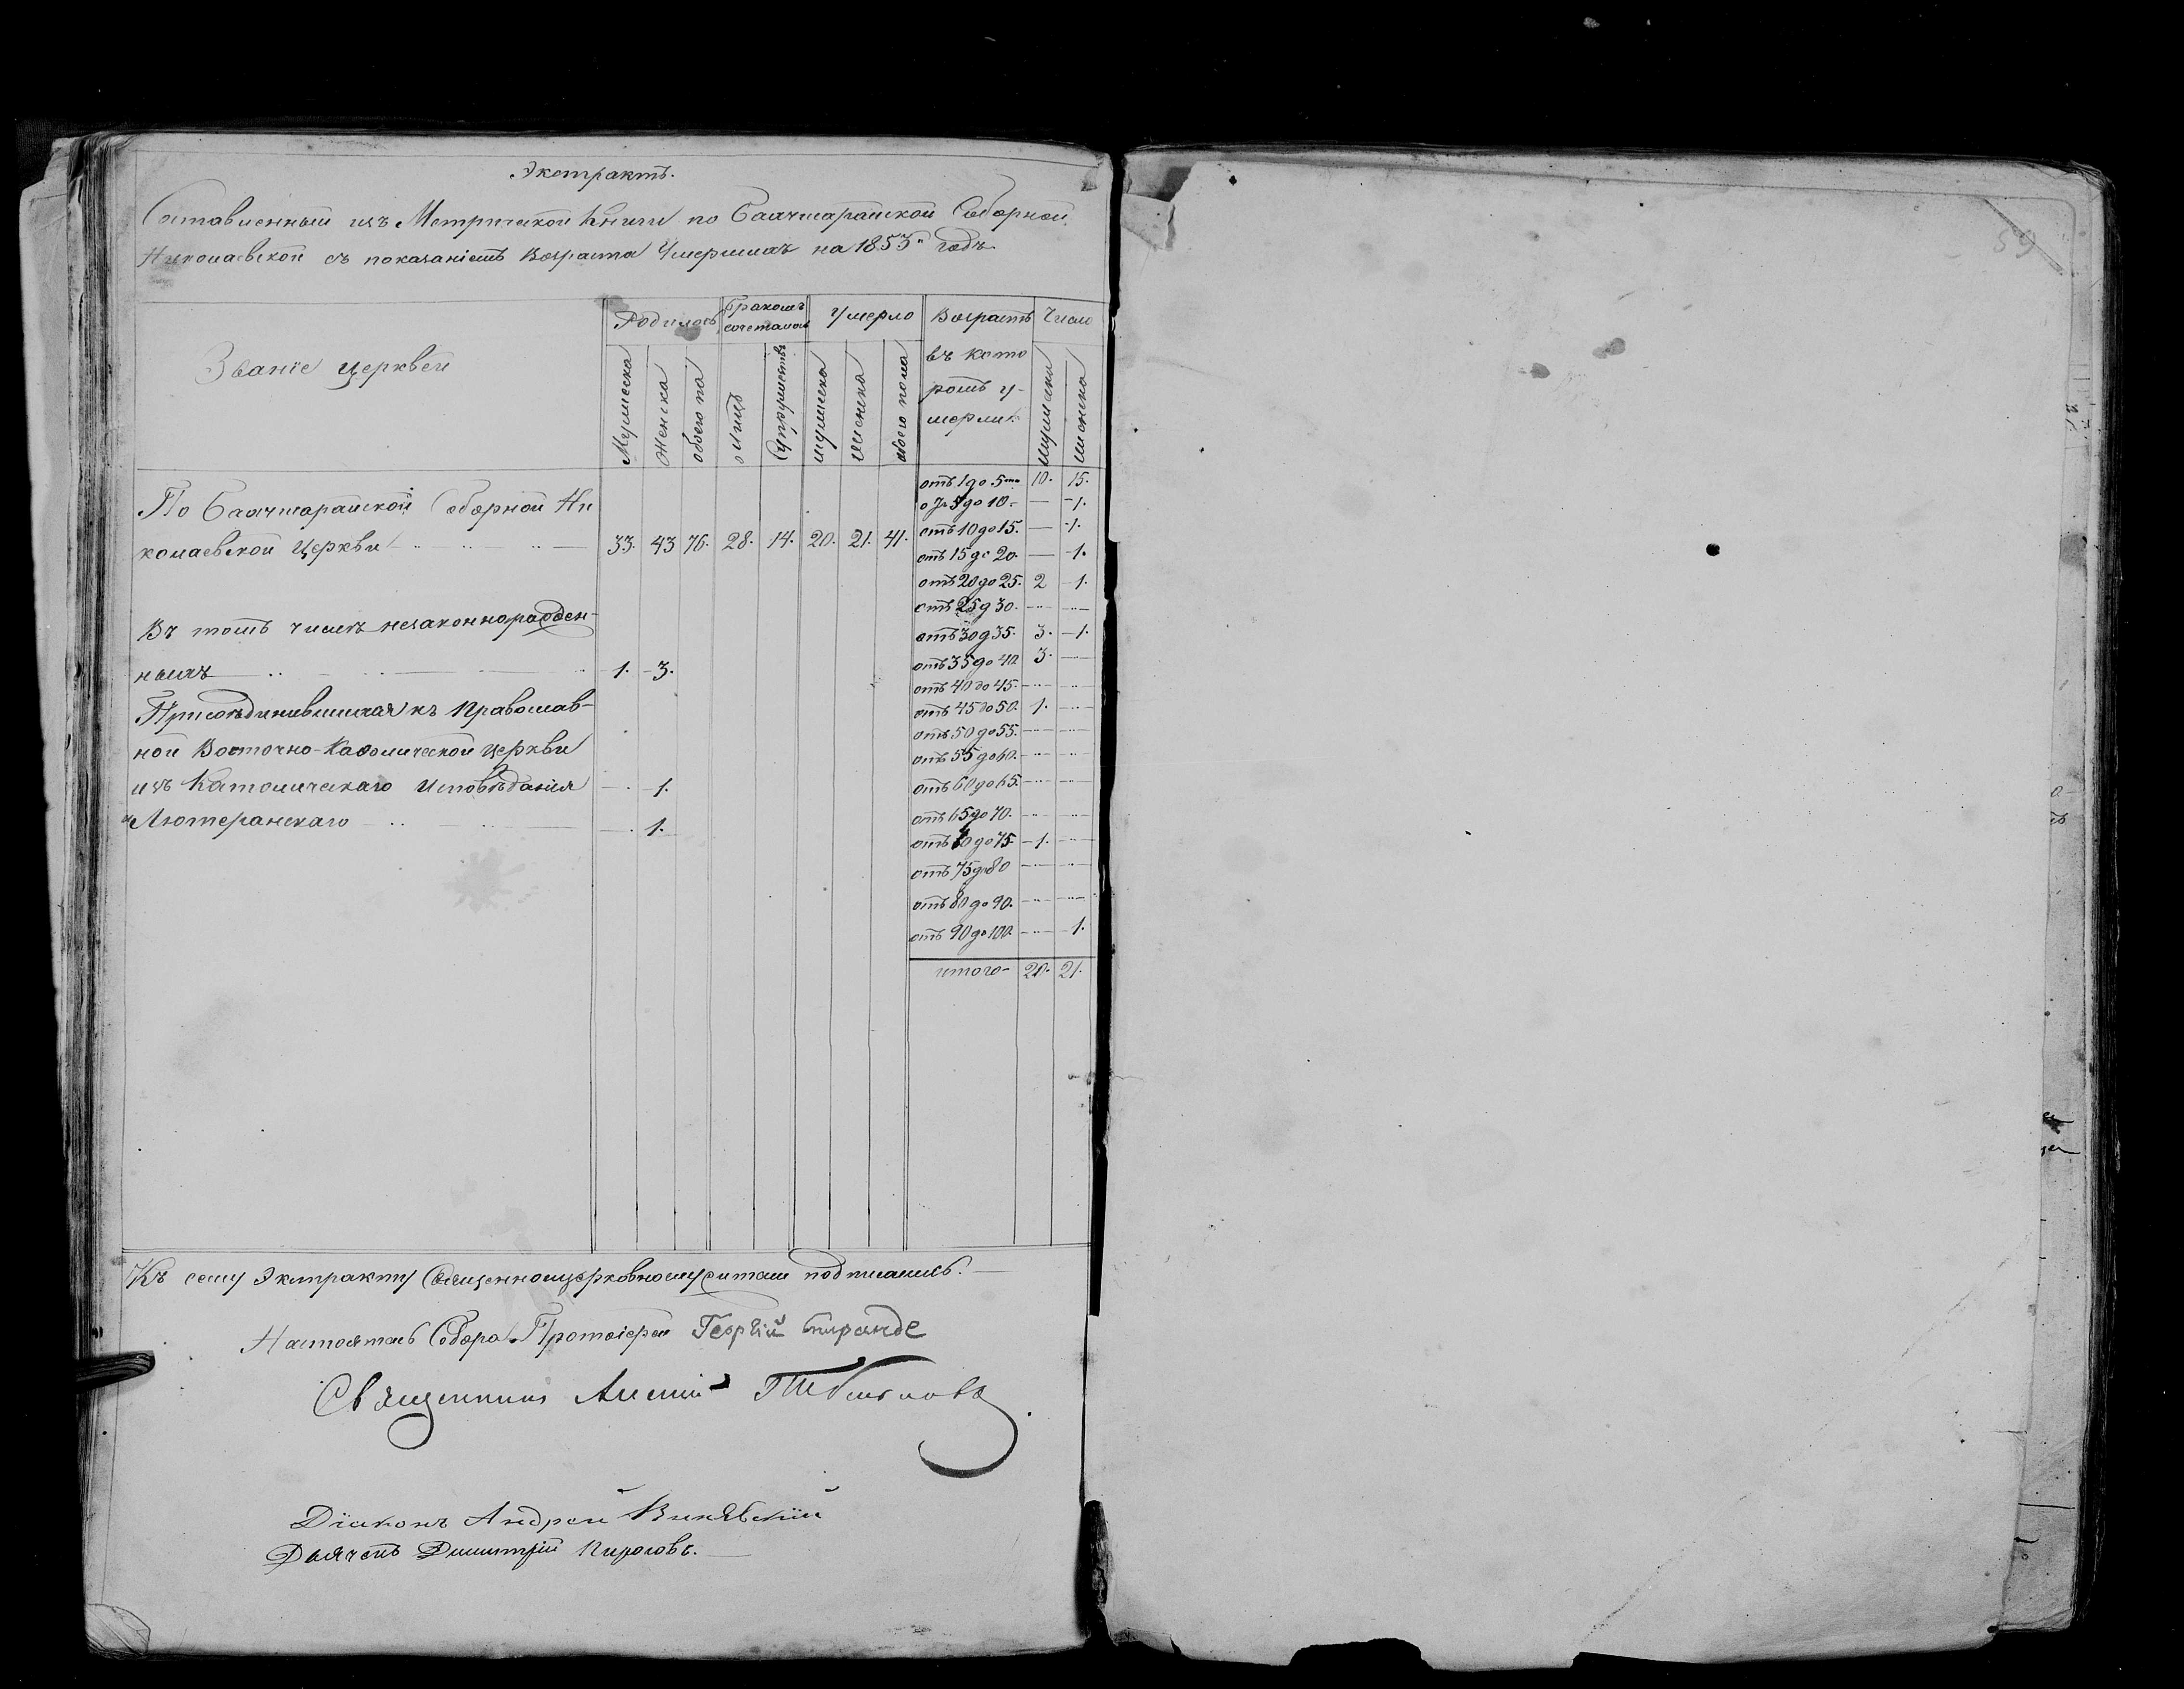 Экстрактъ.
Составленный изъ Метрической Книги по Бахчисарайской Соборной
Николаевской съ показаніемъ Возраста Умершихъ на 1853й годъ.
Званіе церквей
Родилось
Бракомъ сочетались
Умерло
Возрастъ въ кото
ромъ у-
мерли:
Число
Мужеска
Женска
обоего по
лицъ
Супружествъ
мужеска
женска
обоего пола
мужеска
женска
По Бахчисарайской Соборной Ни
колаевской Церкви — 33. 43 76. 28. 14. 20. 21. 41.
Въ томъ числѣ незаконнорожден-
ныхъ — 1. 3.
Присоединившихся къ Православ-
ной Восточно-Каѳолической Церкви
изъ Католическаго Исповѣданія — 1.
Лютеранскаго — 1.
отъ 1 до 5ти 10. 15.
отъ 5 до 10. — 1.
отъ 10 до 15. — 1.
отъ 15 до 20. — 1.
отъ 20 до 25. 2 1.
отъ 25 д 30. — —
отъ 30 д 35. 3. 1.
отъ 35 до 40 3. —
отъ 40 до 45. — —
отъ 45 до 50. 1. —
отъ 50 до 55. — —
отъ 55 до 60. — —
отъ 60 до 65. — —
отъ 65 до 70. — —
отъ 70 до 75. 1. —
отъ 75 до 80 — —
отъ 80 до 90. — —
отъ 90 до 100. — 1.
итого 20. 21.
Къ сему Экстракту Священноцерковнослужители подписались.
Настоятель Собора Протоіерей Георгій
Священникъ
Діаконъ Андрей
Дьячекъ Димитрій Пироговъ.
59